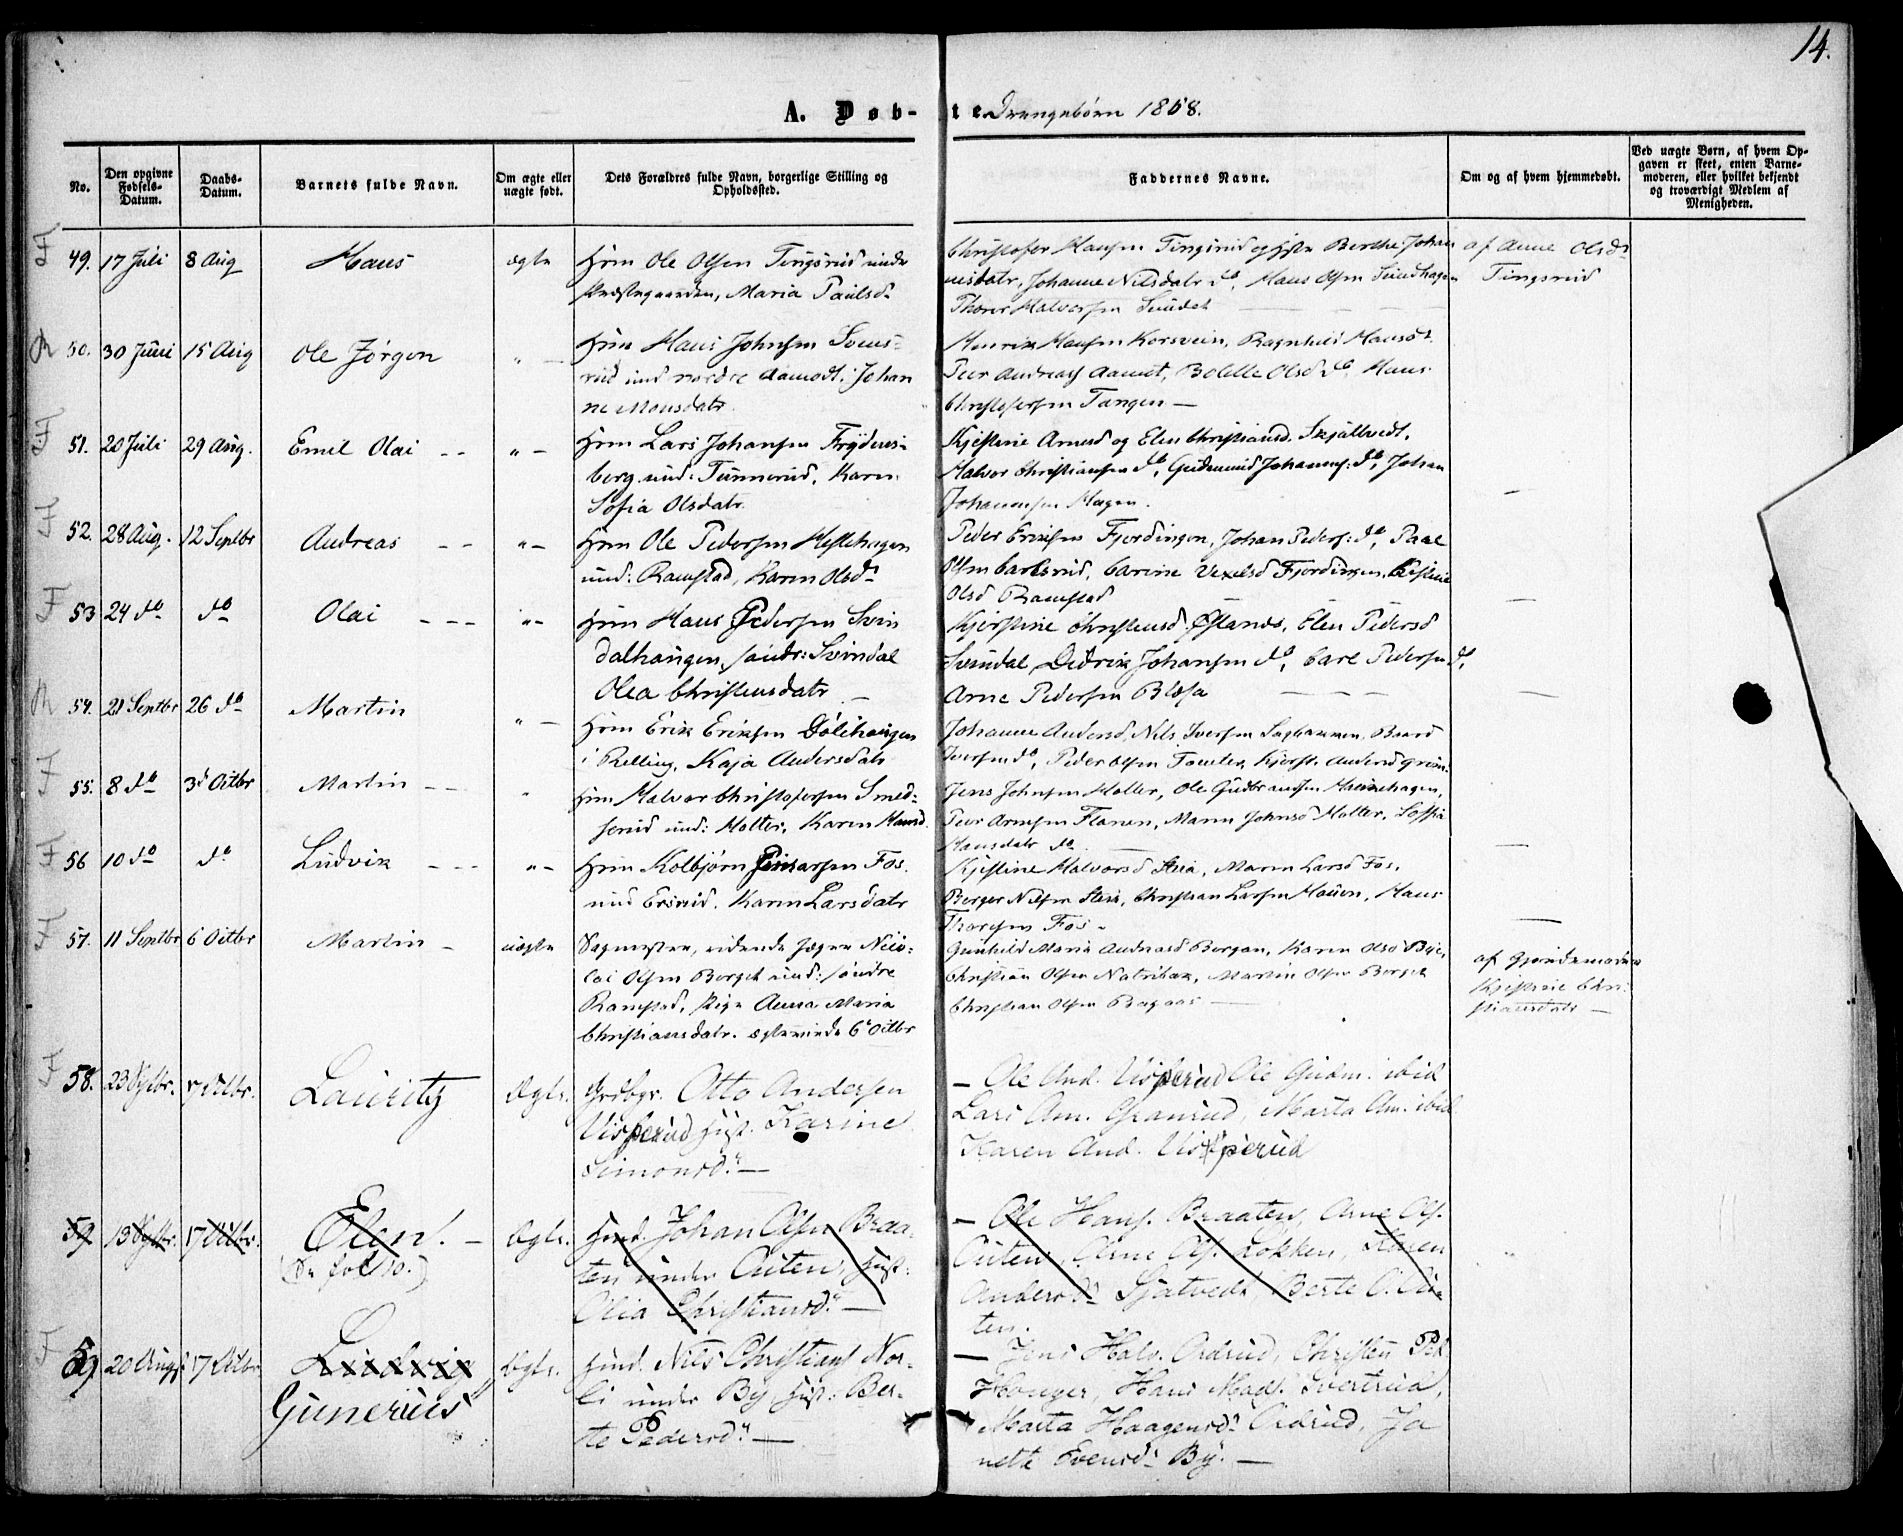 14.
A. Døbte Drengebørn 1868.
No.
Den opgivne Fødsels-Datum.
Daabs-Datum.
Barnets fulde Navn.
Om ægte eller uægte født.
Dets Forældres fulde Navn, borgerlige Stilling og Opholdssted.
Faddernes Navne.
Om og af hvem hjemmedøbt.
Ved uægte Børn, af hvem Opgaven er skeet, enten Barnemoderen, eller hvilket bekjendt og troværdigt Medlem af Menigheden.
F 49. 17 Juli 8 Aug Hans ægte
Hmn Ole Olsen Tingsrud unde
Præstegaarden, Maria Paulsd.
Christofer Hansen Tingsrud og Berthe Johan
nisdatr, Johanne Nilsdatr do, Hans Olsen
Thorer Halvorsen Sundet
af Anne Olsd.
Tingsrud
50. 30 Juni 15 Aug Ole Jørgen " —
Hmn Hans Johnsen Svens-
rud und nordre Aamodt, Johan
ne Monsdatr.
Henrik Hansen Korsvein, Ragnhild Hansd.
Peer Andreas Aamot, Bolette Olsd do, Hans
Christofersen Tangen —
F 51. 20 Juli 29 Aug. Emil Olai - - " —
Hmn Lars Johansen Frydens-
berg und: Tunnerud, Karen
Sofia Olsdatr.
Kjestine Arnesd og Elen Christiansd. Skjatvedt,
Halvor Christiansen do, Gudmund Johannes: do, Johan
Johannesen Hagen.
—
F 52. 28 Aug. 12 Septbr Andreas - - " —
Hmn Ole Pedersen Hestehagen
und: Ramstad, Karen Olsd.
Peder Eriksen Fjerdingen, Johan Peders: do, Paal
Olsen Carlsrud, Carine Vexelsd Fjerdingen,
Olsd Ramstad
—
F 53 24 do do Olai - - - " -
Hmn Hans Pedersen Svin
dalhaugen, søndr: Svindal
Olea Christensdatr —
Kjerstine Christensd. Østands, Elen Pedersd
Svindal, Didrik Johansen do, Carl Pedersen do,
Arne Pedersen Blesa
—
54. 21 Septbr 26 do Martin " —
Hmn Erik Eriksen Dølihaugen
i Rælling, Kaja Andersdatr
Johanne Andersd, Nils Iversen Sagbakken, Baard
Iversen do, Peder Olsen Tomter, Kjerst. Andersd
F 55. 8 do 3d Octbr Martin - - "
Hmn Halvor Christofersen Smed-
serud und: Holter, Karen Hansd.
Jens Johnsen Holter, Ole Gudbrandsen
Peer Arnesen Flanen, Maren Johnsd Holter, Sofia
Hansdatr do.
—
F 56 10 do do Ludvik - - - " -
Hmn Kolbjørn Fos.
und Ersrud. Karen Larsdatr
Kjestine Halvorsd Stua, Maren Larsd Fos,
Berger Nilsen Stua, Christian Larsen Hauen, Hans
Thorsen Fos -
—
F 57. 11 Septbr 6 Octbr Martin - uægte
Sagmester, ridende Jæger Nico-
lai Olsen Borget und: søndre
Ramstad, Pige Anna Maria
Christiansdatr. ægteviede 6 Octbr
Gunhild Maria Andreasd Borgen, Karen Olsd Bye,
Christian Olsen, Martin Olsen Borget
Christian Olsen —
af Gjordemoder
Kjestine Chri-
stiansdatr —
F 58. 23 Septbr. 17 Octbr. Lauritz Ægte.
Grdbgr. Otto Andersen
Visperud Hust. Karine
Simonsd. —
— Ole And. Visperud Ole Gudm. ibid
Lars Am. Granrud, Marta Am. ibid
Karen And. Visperud
59 13 Septbr. 17 Octbr. Elen. - Ægte.
(Se fol 10.)
Husmd. Johan Olsen Braa-
ten under Auten, Hust:
Olia Christiansd. —
— Ole Hans. Braaten, Arne Ols.
Auten, Arne Ols. Løkken, Karen
Andersd Sjatvedt, Berte O. Au-
ten.
"
F 59 20 August 17 Octbr. Ludvig Ægte.
Gunerius
Husmd. Nils Christians Nor-
li under By, Hust: Ber-
te Pedersd. —
— Jens Halv. Ordrud, Christen Ped.
Hanger, Hans Mads. Ivertrud,
Marta Haagensd. Ordrud, Ja
nette Evensd. By. —